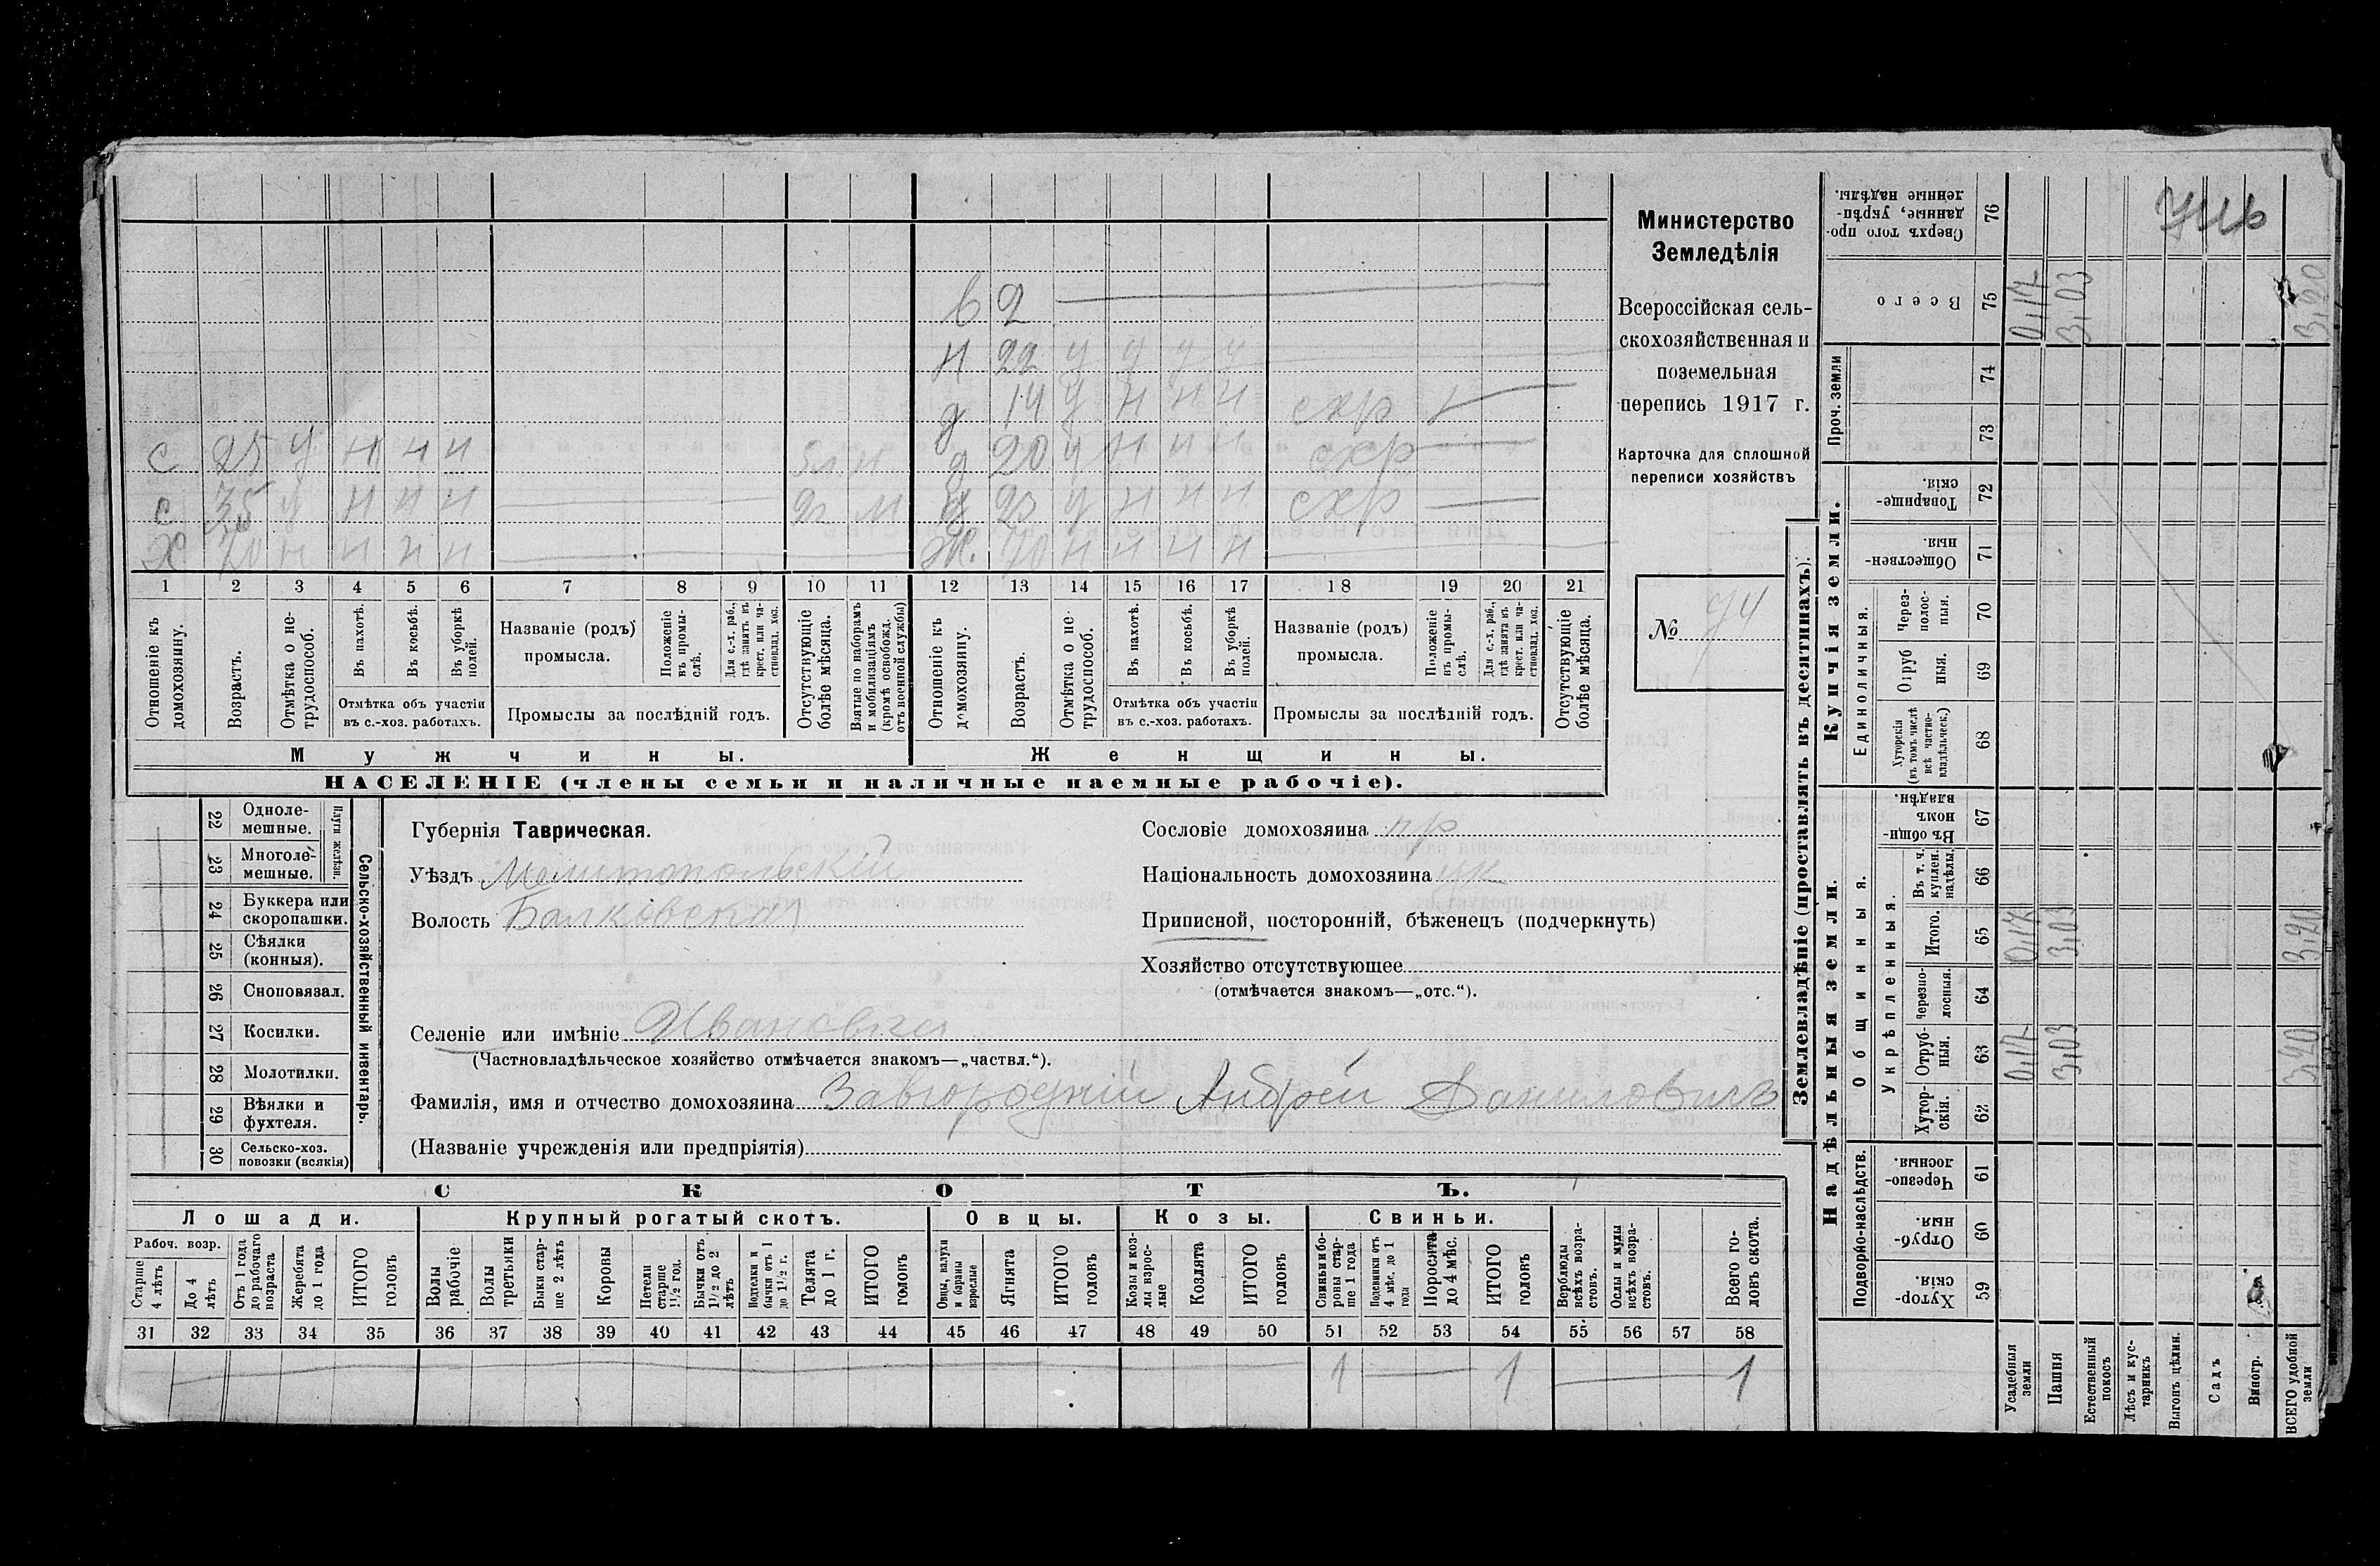 в 2
н 22 у у у у
д 14 у н н н схр
с 25 у н н н д 20 у н н н схр
с 35 у н н н 2г м 23 у н н н схр
Х 70 н н н н Ж. 70 н н н н
1 2 3 4 5 6 7 8 9 10 11 12 13 14 15 16 17 18 19 20 21
Отношеніе къ домохозяину.
Возрастъ.
Отмѣтка о не-трудоспособ.
Въ пахотѣ.
Въ косьбѣ.
Въ уборкѣ полей.
Отмѣтка объ участіи въ с.-хоз. работахъ.
Названіе (родъ) промысла.
Положеніе въ промы-слѣ.
Для с.-х. раб., гдѣ занятъ въ крест. или ча-стновлад. хоз.
Промыслы за послѣдній годъ.
Отсутствующіе болѣе мѣсяца.
Взятые по наборамъ и мобилизаціямъ (кромѣ освобожд. отъ военной службы)
Отношеніе къ домохозяину.
Возрастъ.
Отмѣтка о не-трудоспособ.
Въ пахотѣ.
Въ косьбѣ.
Въ уборкѣ полей.
Отмѣтка объ участіи въ с.-хоз. работахъ.
Названіе (родъ) промысла.
Положеніе въ промы-слѣ.
Для с.-х. раб., гдѣ занята въ крест. или ча-стновлад. хоз.
Промыслы за послѣдній годъ.
Отсутствующіе болѣе мѣсяца.
Мужчины. Женщины.
НАСЕЛЕНІЕ (члены семьи и наличные наемные рабочіе).
Министерство
Земледѣлія
Всероссійская сель-
скохозяйственная и
поземельная
перепись 1917 г.
Карточка для сплошной
переписи хозяйствъ
№ 74
22 Одноле-мешные.
23 Многоле-мешные.
Плуги желѣзн.
24 Буккера или скоропашки.
25 Сѣялки (конныя).
26 Сноповязал.
27 Косилки.
28 Молотилки.
29 Вѣялки и фухтеля.
30 Сельско-хоз. повозки (всякія)
Сельско-хозяйственный инвентарь.
Губернія Таврическая.
Уѣздъ Мелитопольскій
Волость Балковская
Селеніе или имѣніе Ивановка
(Частновладѣльческое хозяйство отмѣчается знакомъ—„частвл.“).
Фамилія, имя и отчество домохозяина Завгородній Андрей Даниловичъ
(Названіе учрежденія или предпріятія)
Сословіе домохозяина кр
Національность домохозяина ук
Приписной, посторонній, бѣженецъ (подчеркнуть)
Хозяйство отсутствующее
(отмѣчается знакомъ—„отс.“).
СКОТЪ.
Лошади. Крупный рогатый скотъ. Овцы. Козы. Свиньи.
Рабоч. возр.
Старше 4 лѣтъ
До 4 лѣтъ
Отъ 1 года до рабочаго возраста
Жеребята до 1 года
ИТОГО головъ
Волы рабочіе
Волы третьяки
Быки стар-ше 2 лѣтъ
Коровы
Нетели старше 1½ год.
Бычки отъ 1½ до 2 лѣтъ
Подтелки и бычки отъ 1 до 1½ г.
Телята до 1 г.
ИТОГО головъ
Овцы, валухи и бараны взрослые
Ягнята
ИТОГО головъ
Козы и коз-лы взрос-лые
Козлята
ИТОГО головъ
Свиньи и бо-ровы стар-ше 1 года
Подсвинки отъ 4 мѣс. до 1 года
Поросята до 4 мѣс.
ИТОГО головъ
Верблюды всѣхъ возра-стовъ.
Ослы и мулы всѣхъ возра-стовъ.
Всего го-ловъ скота.
31 32 33 34 35 36 37 38 39 40 41 42 43 44 45 46 47 48 49 50 51 52 53 54 55 56 57 58
1 1 1
Землевладѣніе (проставлять въ десятинахъ).
Купчія земли.
Надѣльныя земли.
Единоличныя.
Общинныя.
Укрѣпленныя.
Подворно-наслѣдств.
Проч. земли
Сверхъ того про-данные, укрѣп-ленные надѣлы. 76
Всего 75 0,17 3,03 3,20
74
73
Товарище-скія. 72
Обществен-ныя. 71
Через-полос-ныя. 70
Отруб ныя. 69
Хуторскія (въ томъ числѣ всѣ частно-владѣльческ.) 68
Въ общи-номъ владѣн. 67
Въ т. ч. куплен. надѣлы. 66
Итого. 65 0,17 3,03 3,20
Черезпо-лосныя. 64
Отруб-ныя. 63 0,17 3,03 3,20
Хутор-скія. 62
Черезпо-лосныя. 61
Отруб-ныя. 60
Хутор-скія. 59
Усадебныя земли
Пашня
Естественный покосъ
Лѣсъ и кус-тарникъ
Выгонъ цѣлин.
Садъ
Виногр.
ВСЕГО удобной земли